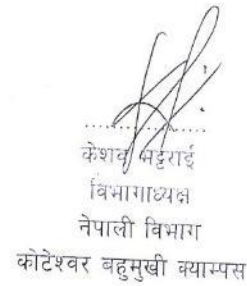 केशव भट्टराई
विभागाध्यक्ष
नेपाली विभाग
कोटेश्वर बहुमुखी क्याम्पस